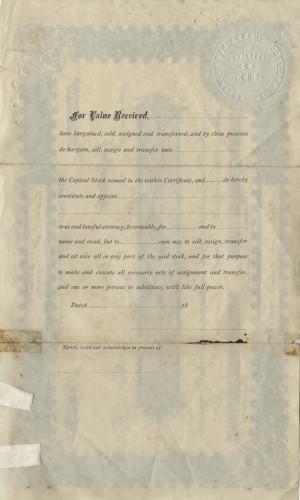 For Value Received,
have bargained, sold, assigned and transferred, and by these presents
do bargain, sell, assign and transfer unto
the Capital Stock named in the within Certificate, and do hereby
constitute and appoint
true and lawful attorney, irrevocable, for and in
name and stead, but to own use, to sell, assign, transfer
and set over all or any part of the said stock, and for that purpose
to make and execute all necessary acts of assignment and transfer,
and one or more persons to substitute, with like full power.
Dated 18
Signed, sealed and acknowledged in presence of